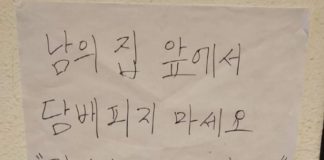 남의 집 앞에서
담배피지 마세오